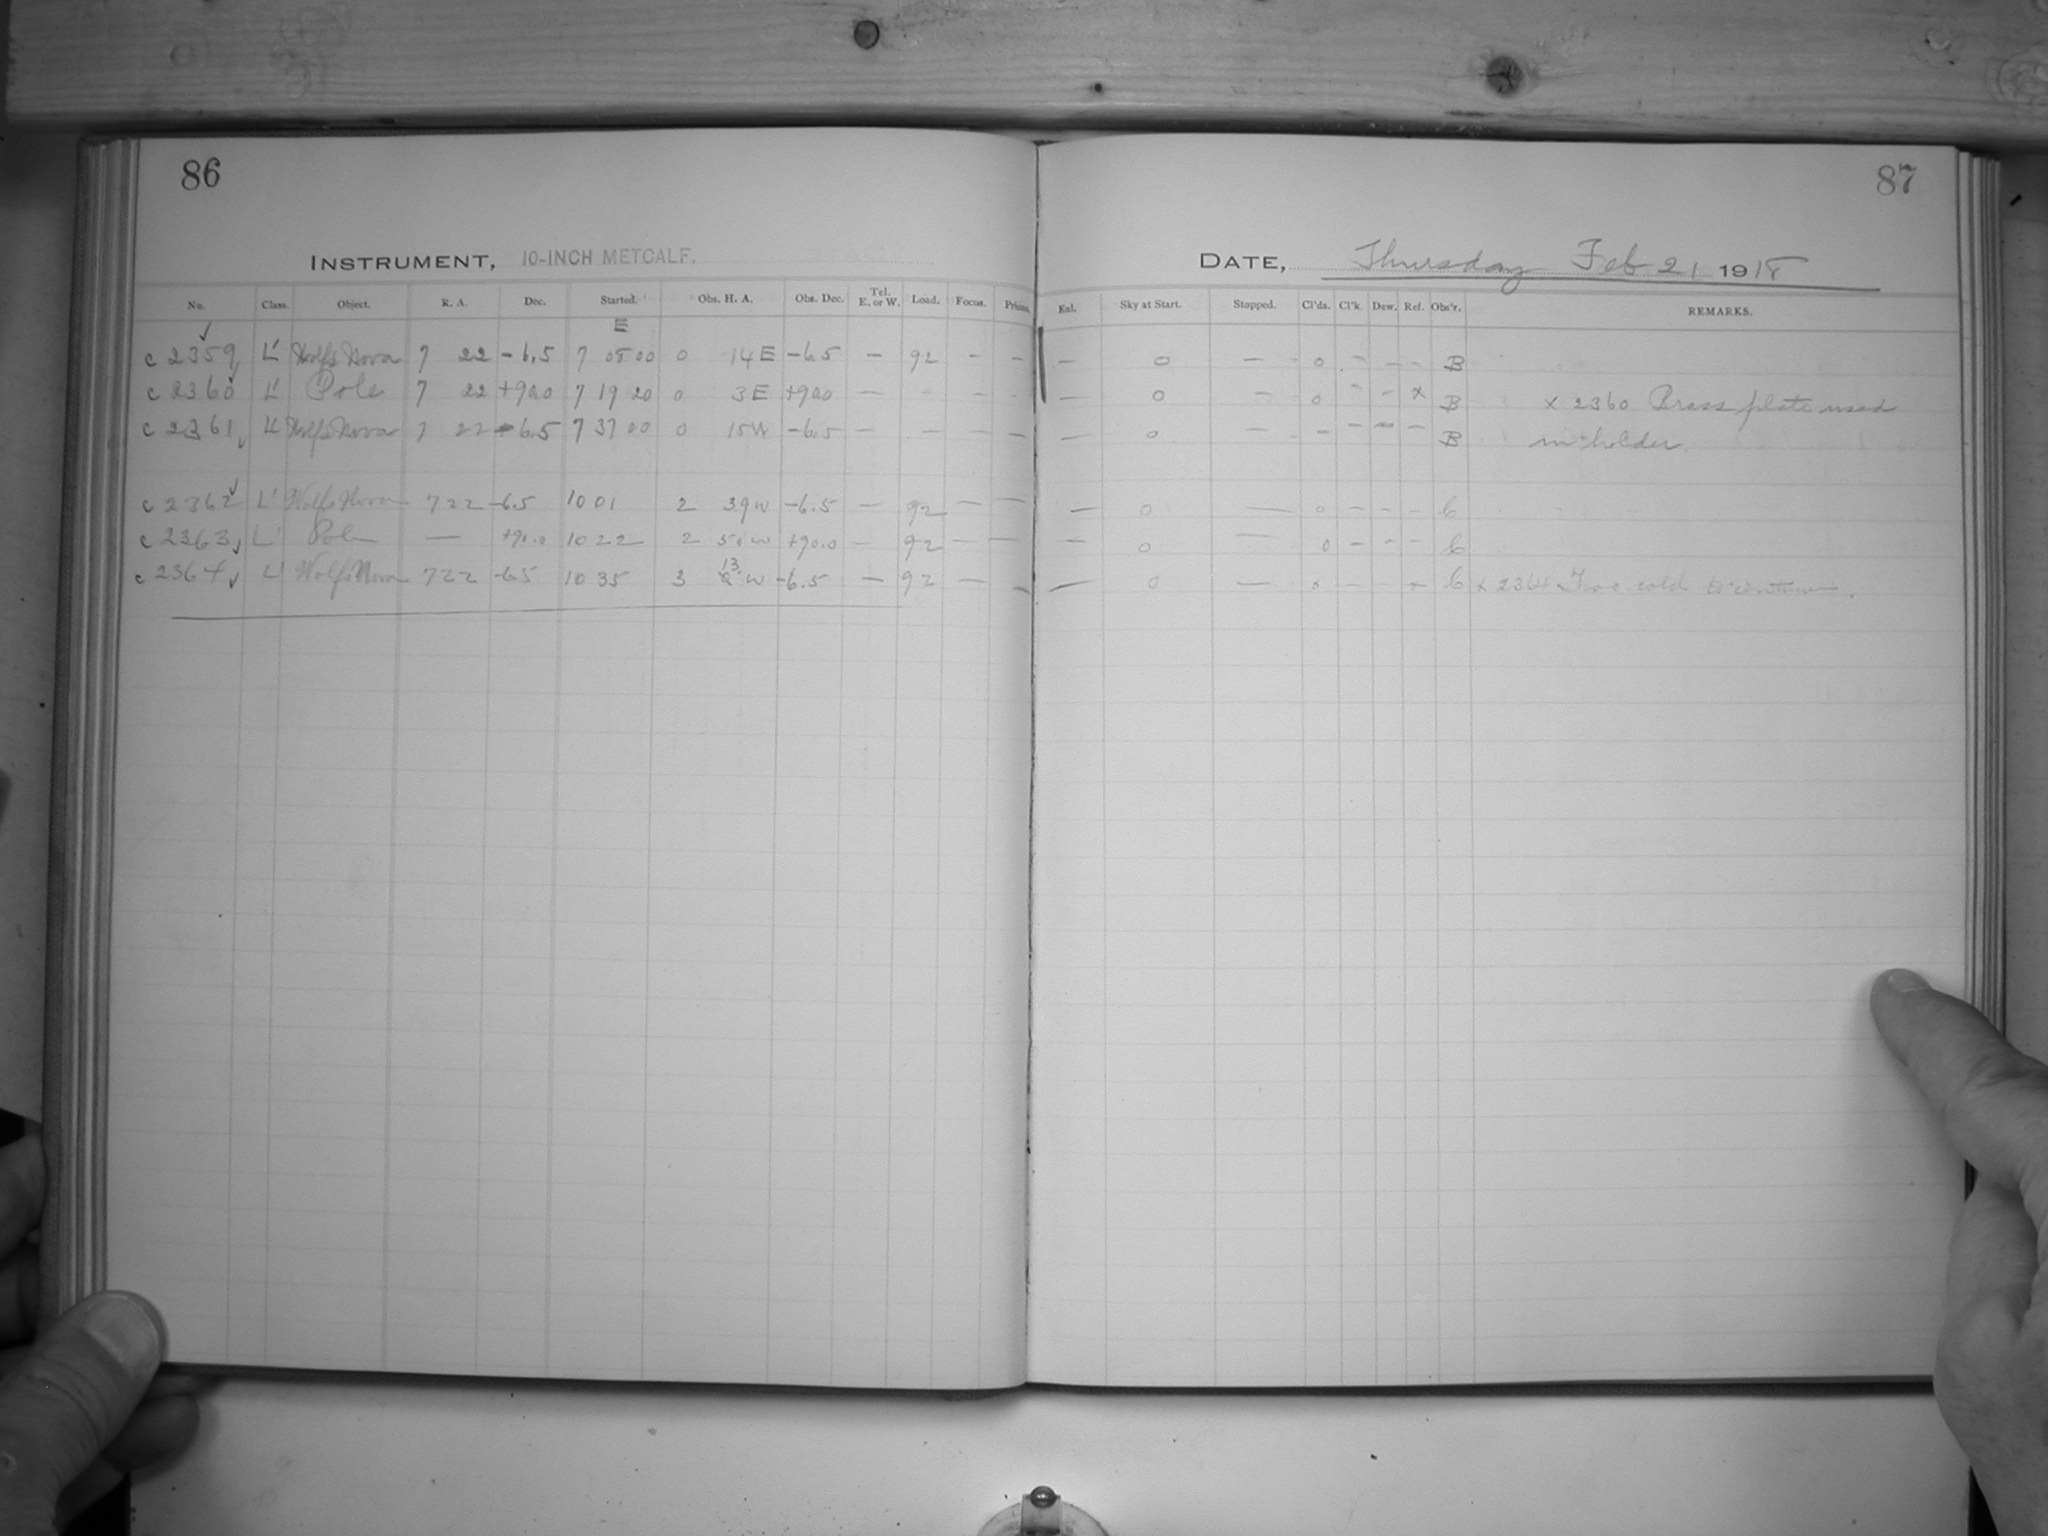 86
87
INSTRUMENT, 10-INCH METCALF.
DATE, Thursday Feb 21 1918
No. Class. Object. R. A. Dec. Started. Obs. H. A. Obs. Dec. Tel. E. or W. Load. Focus. Prisms. Enl. Sky at Start. Stopped. Cl'ds. Cl'k Dew. Ref. Obs'r. REMARKS.
E
c 2359 L' Wolf's Nova 7 22 -6.5 7 05 00 0 14 E -6.5 — 92 - — — 0 — 0 - - - B
c 2360 L' Pole 7 22 +90.0 7 19 20 0 3 E +90.0 — - - - — 0 — 0 - - x B x 2360 Brass plate used
c 2361 L' Wolf's Nova 7 22 -6.5 7 37 00 0 15 W -6.5 — - — — — 0 — - - - - B in holder.
c 2362 L' Wolf's Nova 7 22 -6.5 10 01 2 39 W -6.5 — 92 — — — 0 — 0 - - - C
c 2363 L' Pole — +90.0 10 22 2 50 W +90.0 — 92 — — — 0 — 0 - - - C
c 2364 L' Wolf's Nova 7 22 -6.5 10 35 3 13 W -6.5 — 92 — — — 0 — 0 - - x C x 2364 Too cold to continue.